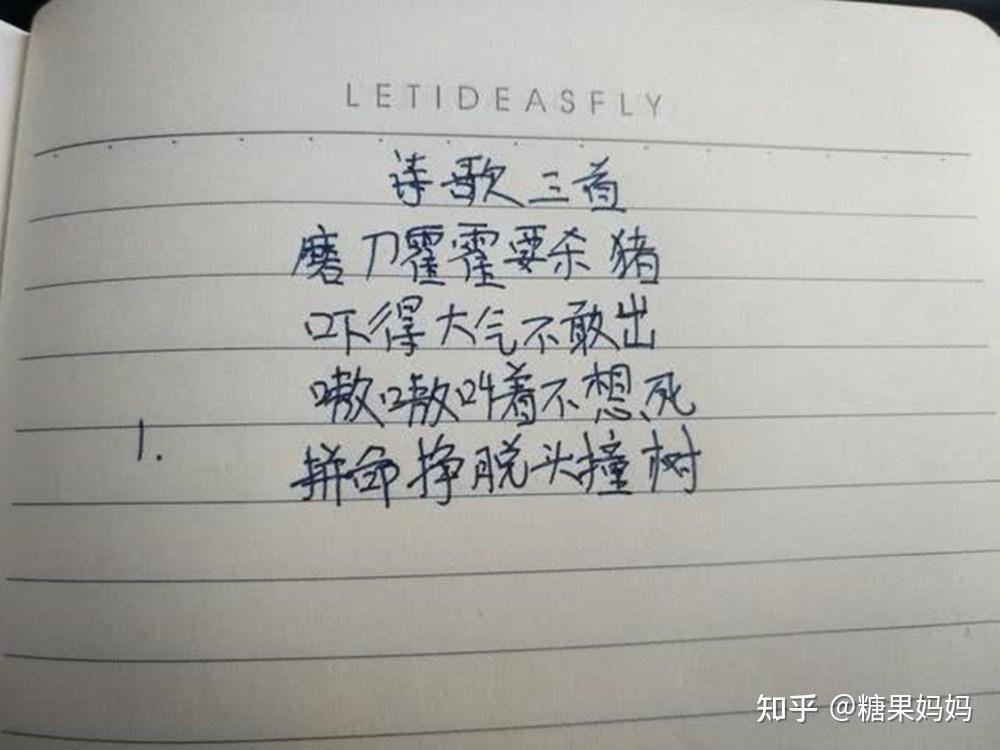 LETIDEASFLY
诗歌三首
磨刀霍霍要杀猪
吓得大气不敢出
嗷嗷叫着不想死
1.
拼命挣脱头撞树
知乎 @糖果妈妈